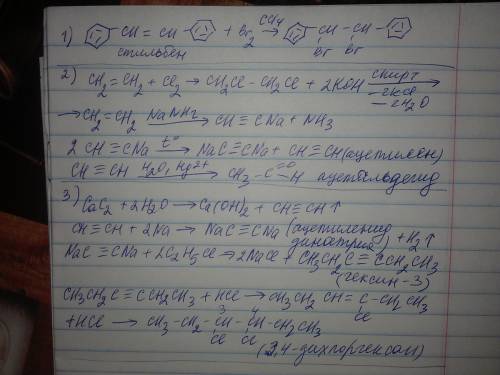 1) CH = CH + Br2 CCl4→ CH – CH
Br Br
стильбен
2) CH2=CH2 + Cl2 → CH2Cl – CH2Cl + 2KOH спирт
-2KCl
-2H2O
→ CH2=CH2 NaNH2→ CH≡CNa + NH3
2 CH≡CNa t°→ NaC≡CNa + CH≡CH (ацетилен)
CH≡CH H2O, Hg2+→ CH3–C=O H ацетальдегид
3) CaC2 + 2H2O → Ca(OH)2 + CH≡CH↑
CH≡CH + 2Na → NaC≡CNa (ацетиленид
динатрия) + H2↑
NaC≡CNa + 2C2H5Cl → 2NaCl + CH3CH2C≡CCH2CH3
(гексин-3)
CH3CH2C≡CCH2CH3 + HCl → CH3CH2CH=C–CH2CH3
Cl
+HCl → CH3–CH2–CH–CH–CH2CH3
3 4
Cl Cl
(3,4-дихлоргексан)